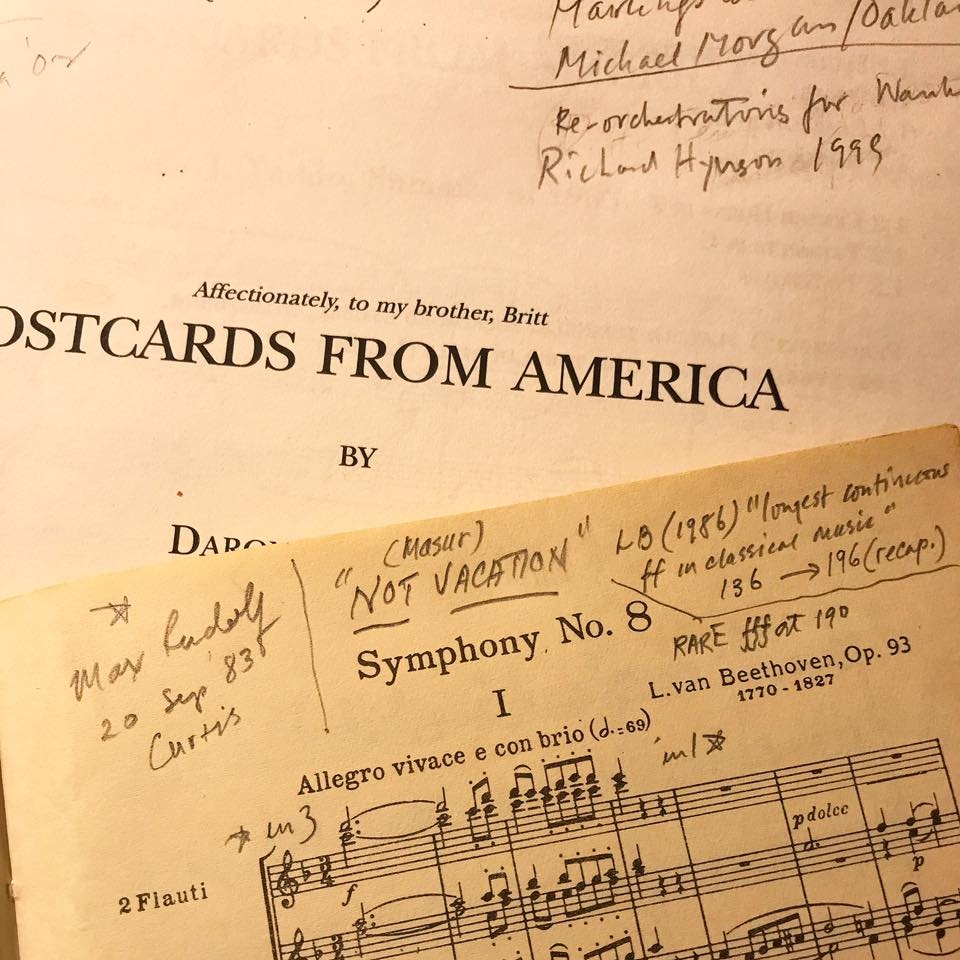 Markings
Michael Morgan/Oakla
Re-orchestrations for
Richard Hynson
Affectionately, to my brother, Britt
OSTCARDS FROM AMERICA
BY
DARON
☆
Max Rudolf
20 Sep '83
Curtis
(Masur)
"NOT VACATION"
LB (1986) "longest continuous
ff in classical music"
136 → 196 (recap.)
RARE fff at 190
Symphony No. 8
L. van Beethoven, Op. 93
1770 - 1827
I
Allegro vivace e con brio (𝅗𝅥. = 69)
in 1 ☆
☆ in 3
2 Flauti
f
p dolce
p